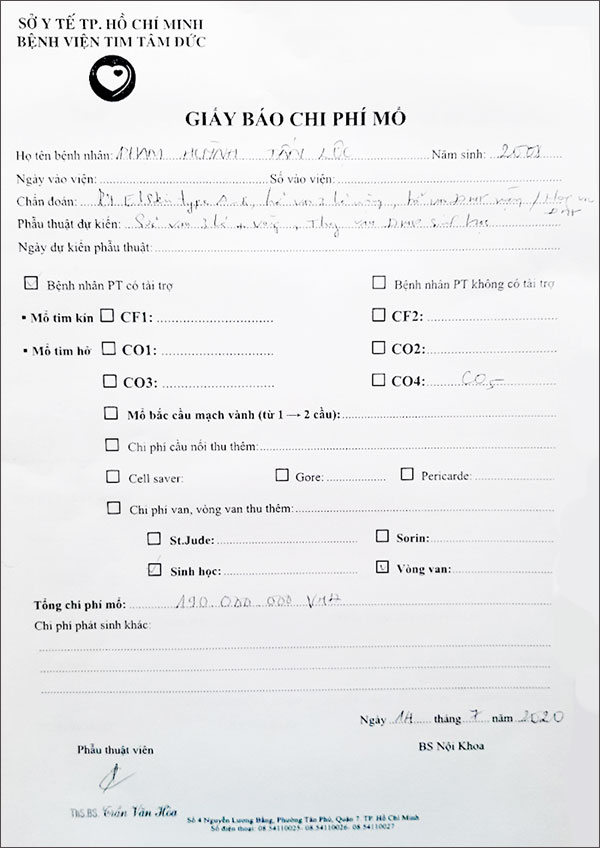 SỞ Y TẾ TP. HỒ CHÍ MINH
BỆNH VIỆN TIM TÂM ĐỨC
GIẤY BÁO CHI PHÍ MỔ
Họ tên bệnh nhân: PHẠM HUỲNH TẤN LỘC Năm sinh: 2008
Ngày vào viện: Số vào viện:
Chẩn đoán: type hở van 3 lá nặng, hở van ĐMP nặng / Hẹp van ĐMP
Phẫu thuật dự kiến: Sửa van 3 lá + vòng, Thay van ĐMP sinh học
Ngày dự kiến phẫu thuật:
Bệnh nhân PT có tài trợ Bệnh nhân PT không có tài trợ
▪ Mổ tim kín CF1: CF2:
▪ Mổ tim hở CO1: CO2:
CO3: CO4: CO5
Mổ bắc cầu mạch vành (từ 1 → 2 cầu):
Chi phí cầu nối thu thêm:
Cell saver: Gore: Pericarde:
Chi phí van, vòng van thu thêm:
St.Jude: Sorin:
Sinh học: Vòng van:
Tổng chi phí mổ: 190.000.000 VNĐ
Chi phí phát sinh khác:
Ngày 14 tháng 7 năm 2020
Phẫu thuật viên BS Nội Khoa
ThS.BS. Trần Văn Hòa
Số 4 Nguyễn Lương Bằng, Phường Tân Phú, Quận 7. TP. Hồ Chí Minh
Số điện thoại: 08.54110025- 08.54110026- 08.54110027